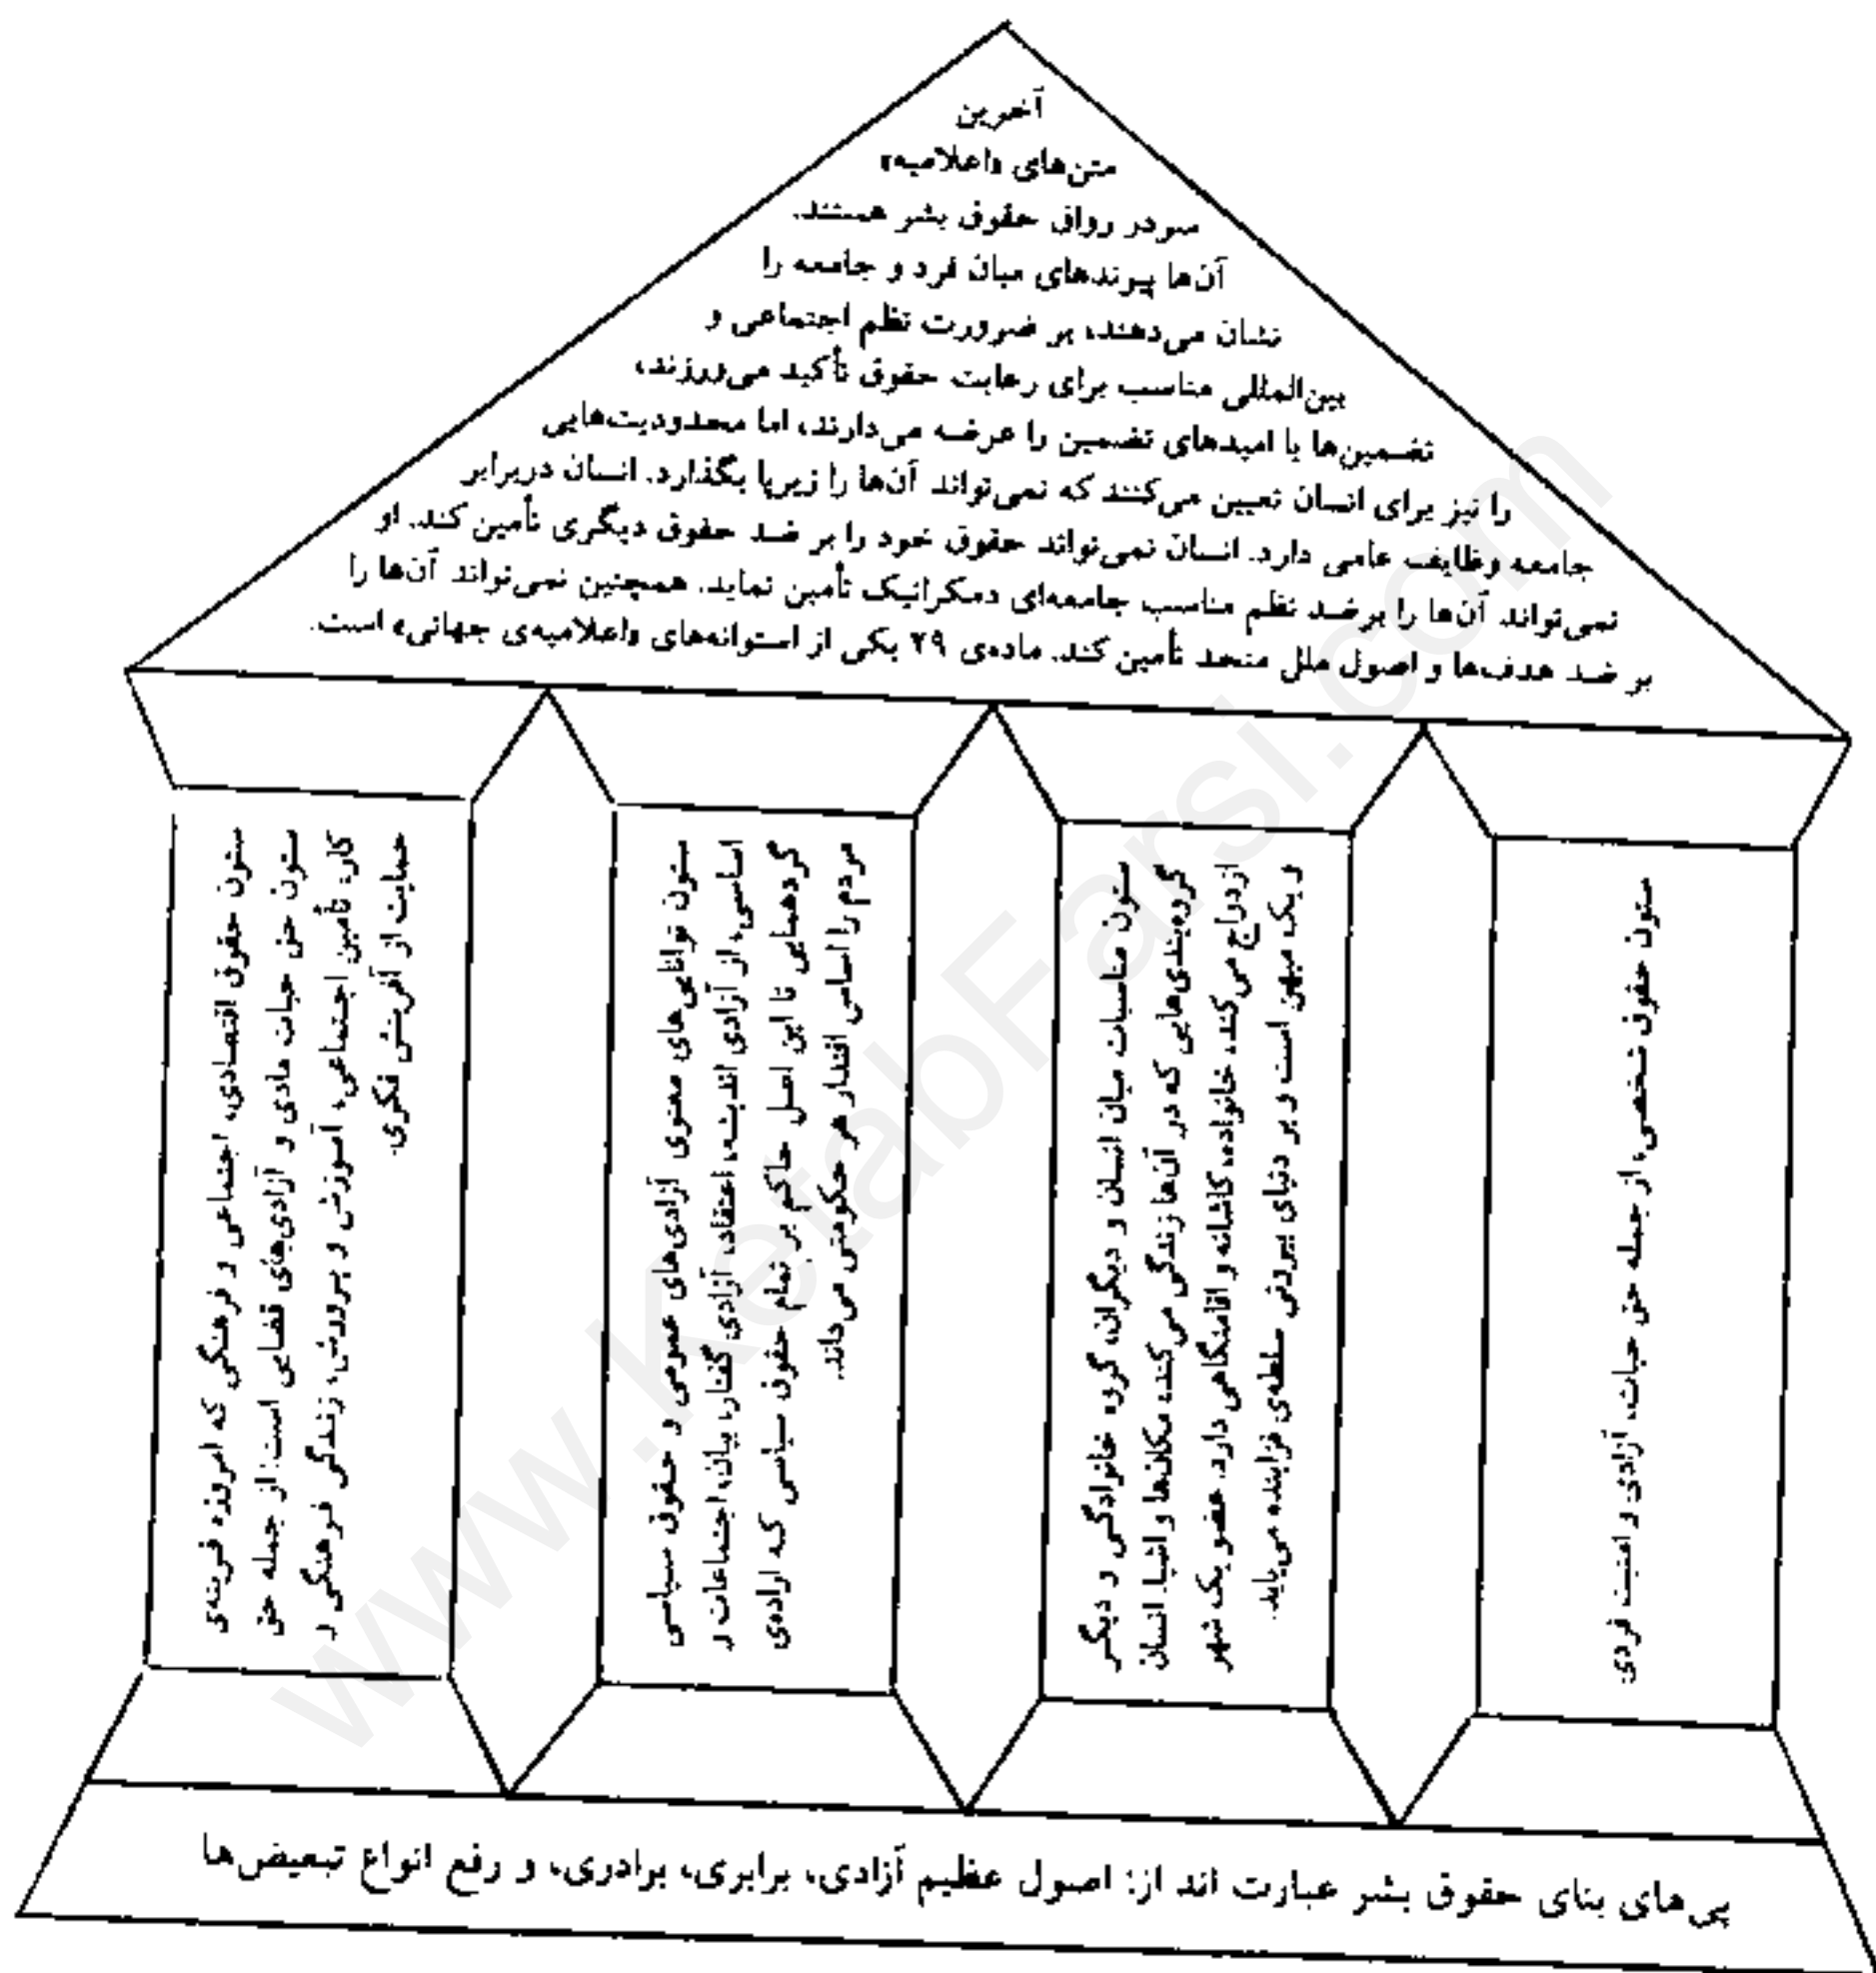 آخرین
متن‌های «اعلامیه»
سردر رواق حقوق بشر هستند.
آن‌ها پیوندهای میان فرد و جامعه را
نشان می‌دهند، بر ضرورت نظم اجتماعی و
بین‌المللی مناسب برای رعایت حقوق تأکید می‌ورزند،
تضمین‌ها یا امیدهای تضمین را عرضه می‌دارند، اما محدودیت‌هایی
را نیز برای انسان تعیین می‌کنند که نمی‌تواند آن‌ها را زیرپا بگذارد. انسان دربرابر
جامعه وظایف عامی دارد. انسان نمی‌تواند حقوق خود را بر ضد حقوق دیگری تأمین کند. او
نمی‌تواند آن‌ها را برضد نظم مناسب جامعه‌ای دمکراتیک تأمین نماید. همچنین نمی‌تواند آن‌ها را
بر ضد هدف‌ها و اصول ملل متحد تأمین کند. ماده‌ی ۲۹ یکی از استوانه‌های «اعلامیه‌ی جهانی» است.
ستون حقوق شخصی، از جمله حق حیات، آزادی و امنیت فردی
ستون مناسبات میان انسان و دیگران، گروه خانوادگی و دیگر
گروه‌بندی‌هایی که در آن‌ها زندگی می‌کند، مکان‌ها و اشیا. انسان
ازدواج می‌کند، خانواده، کاشانه و اقامتگاهی دارد. عضو یک شهر
و یک میهن است و بر دنیای بیرونش سلطه‌ی فزاینده می‌یابد.
ستون توانایی‌های معنوی آزادی‌های عمومی و حقوق سیاسی
اساسی، از آزادی اندیشه، اعتقاد، آزادی گفتار، بیان، اجتماعات و
گردهمایی تا این اصل حاکم بر تمام حقوق سیاسی که اراده‌ی
مردم را اساس اقتدار هر حکومتی می‌داند.
ستون حقوق اقتصادی، اجتماعی و فرهنگی که امروزه قرینه‌ی
ستون حق حیات مادی و آزادی‌های قضایی است: از جمله حق
کار، تأمین اجتماعی، آموزش و پرورش، زندگی فرهنگی و
حمایت از آفرینش فکری.
پی‌های بنای حقوق بشر عبارت اند از: اصول عظیم آزادی، برابری، برادری، و رفع انواع تبعیض‌ها
www.KetabFarsi.com